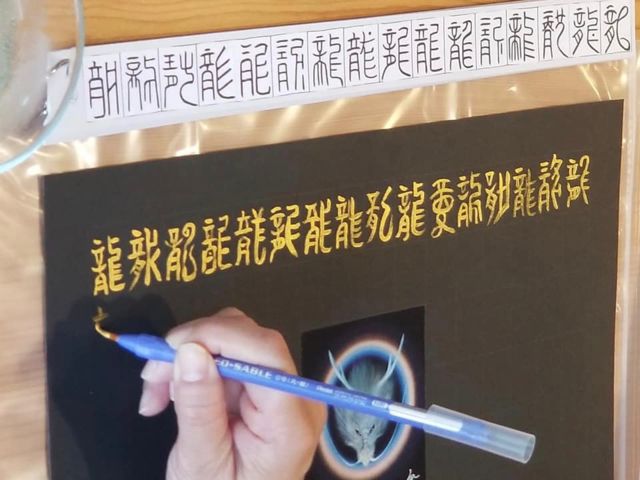 龍龍龍龍龍龍龍龍龍龍龍龍龍龍龍龍
龍龍龍龍龍龍龍龍龍龍龍龍龍龍龍龍
EO-SABLE